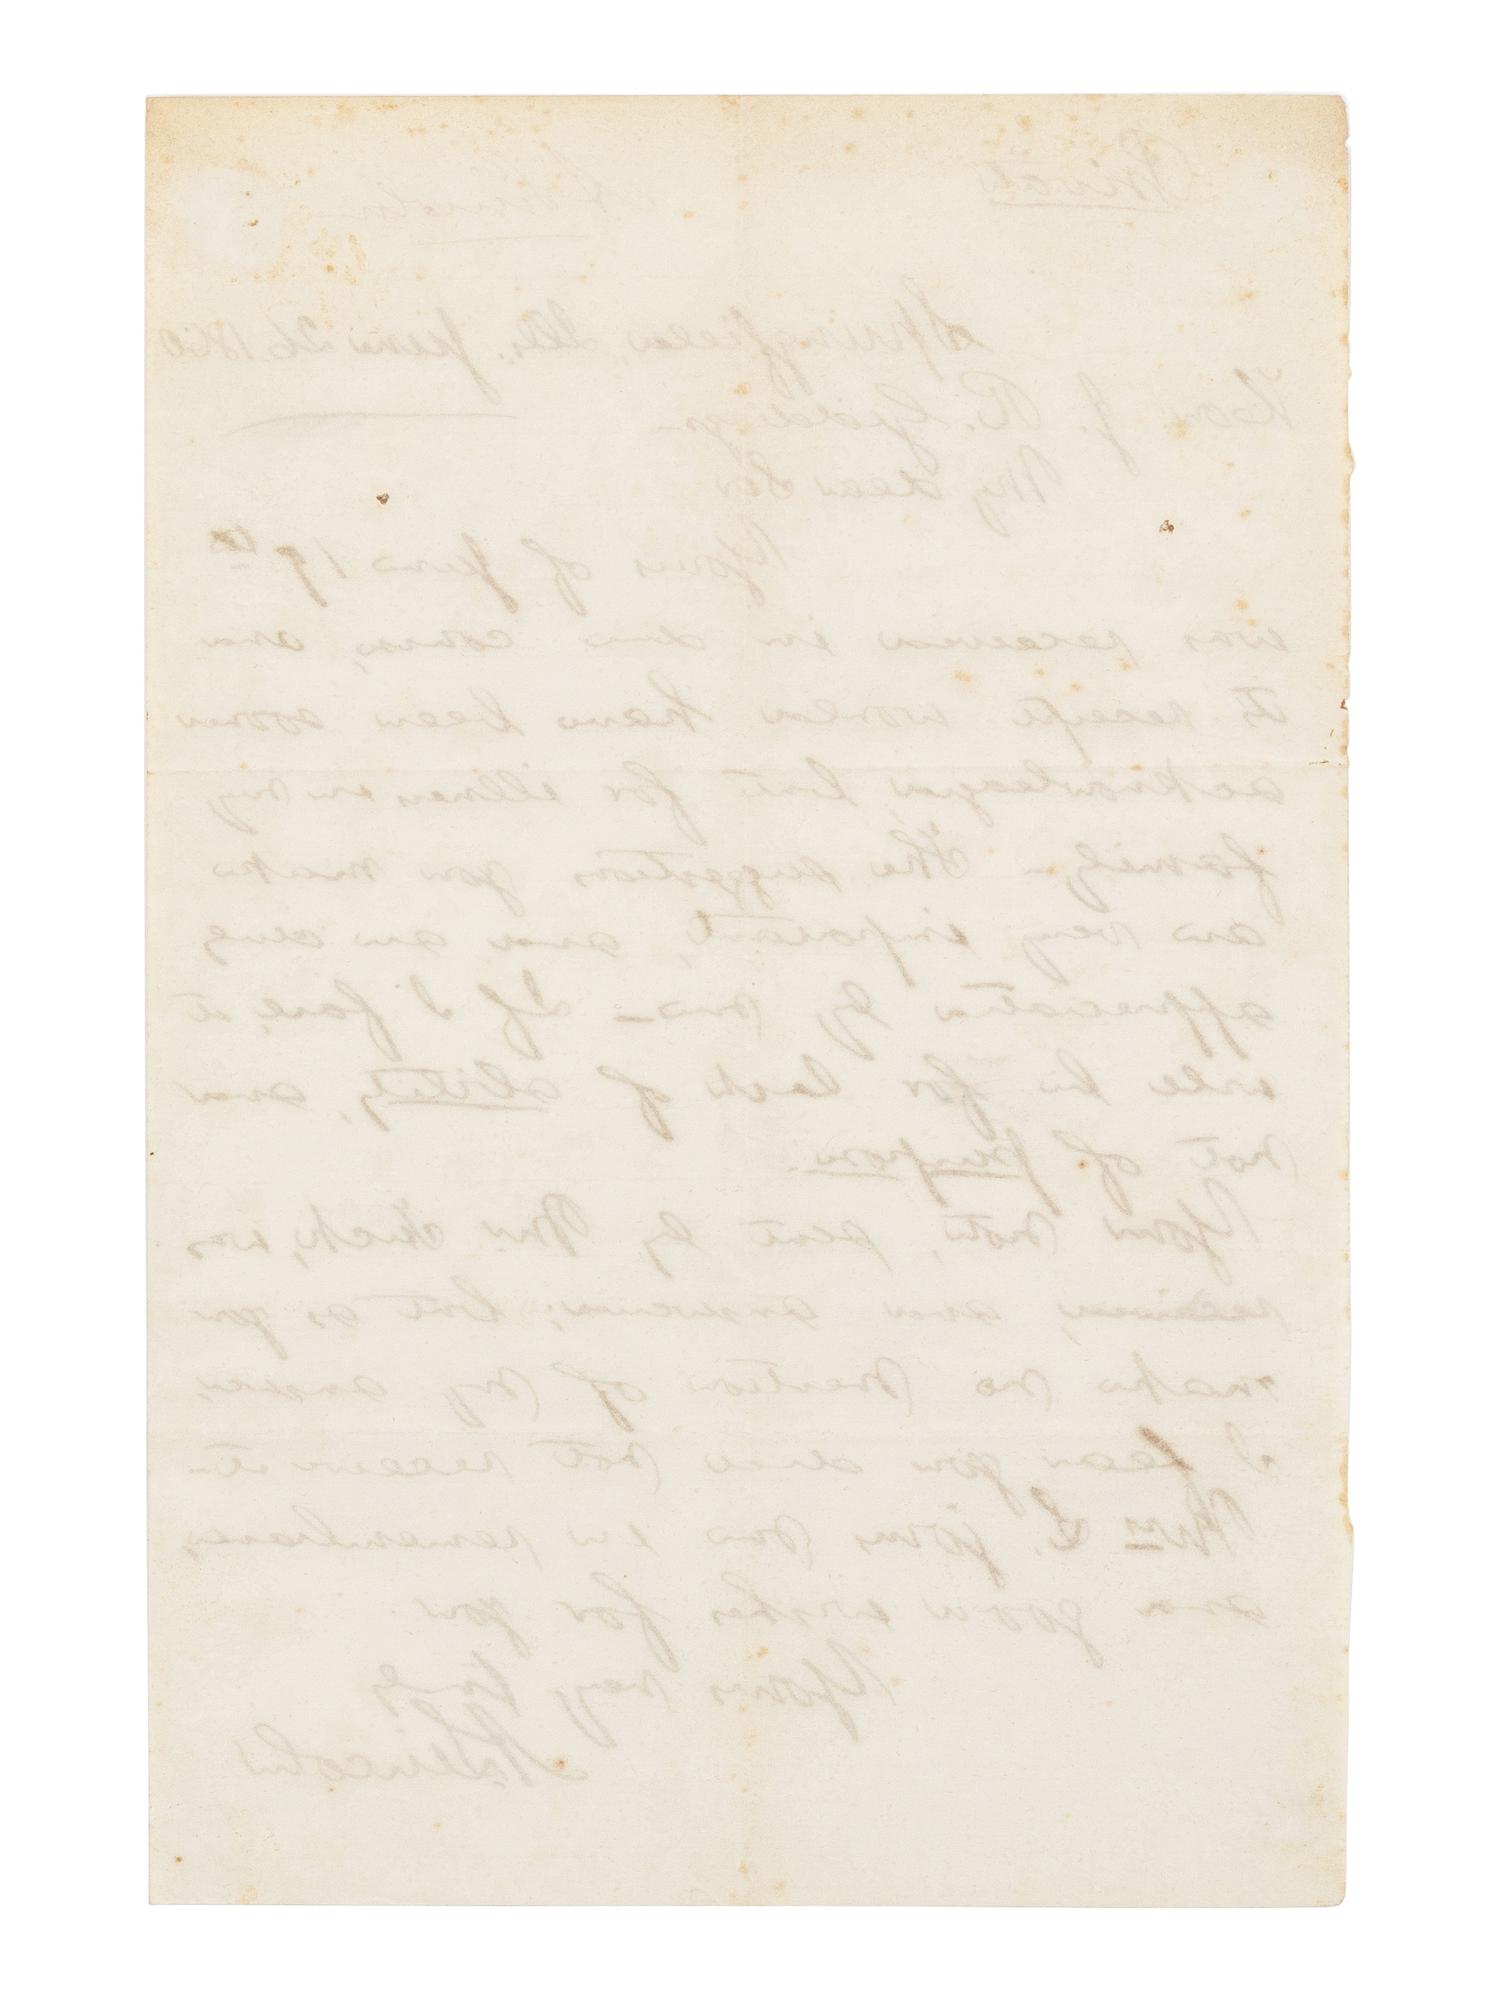 Private
A. Lincoln
Springfield, Ills. June 26. 1860
Hon. J. R. Giddings
My dear Sir
Yours of June 19th
was received in due course, and
its receipt would have been sooner
acknowledged but for illness in my
family. The suggestions you make
are very important, and are duly
appreciated by me - If I fail, it
will be for lack of ability, and
not of purpose.
Yours note, sent by Mr. was
received, and answered; but as you
make no mention of my answer
I fear you did not receive it -
Mrs L. joins me in remembrances
and good wishes for you
Yours very truly
A. Lincoln